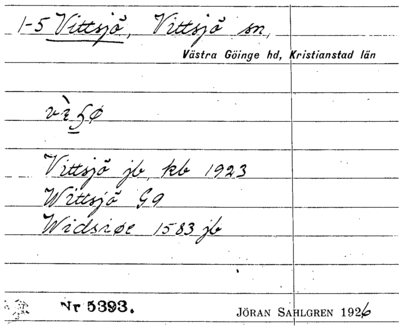 1-5 Vittsjö, Vittsjö sn,
Västra Göinge hd, Kristianstad län
Vittsjö jb, kb 1923
Wittsjö G9
Widsiöe 1583 jb
Nr 5393.
JÖRAN SAHLGREN 1926